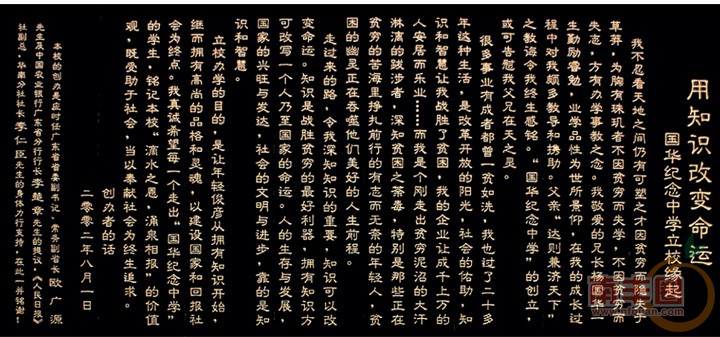 用知识改变命运
国华纪念中学立校缘起
我不忍看天地之间仍有可塑之才因贫穷而隐失于
草莽，为胸有珠玑者不因贫穷而失学，不因贫穷而
失志，方有办学事教之念。我敬爱的兄长杨国华一
生勤励睿勉，业学品性为世所景仰，在我的成长过
程中对我颇多教导和携助。父亲“达则兼济天下”
之教诲令我终生感铭。“国华纪念中学”的创立，
或可告慰我父兄在天之灵。
很多事业有成者都曾一贫如洗，我也过了二十多
年这种生活，是改革开放的阳光，社会的佑助，知
识和智慧让我战胜了贫困，我的企业让成千上万的
人安居而乐业……而我是个刚走出贫穷泥沼的大汗
淋漓的跋涉者，深知贫困之荼毒，特别是那些正在
贫穷的苦海里挣扎前行的有志而无奈的年轻人，贫
困的幽灵正在吞噬他们美好的人生前程。
走过来的路，令我深知知识的重要，知识可以改
变命运。知识是战胜贫穷的最好利器，拥有知识方
可改写一个人乃至国家的命运。人的生存与发展，
国家的兴旺与发达，社会的文明与进步，靠的是知
识和智慧。
立校办学的目的，是让年轻俊彦从拥有知识开始，
继而拥有高尚的品格和灵魂，以建设国家和回报社
会为终点。我真诚希望每一个走出“国华纪念中学”
的学生，铭记本校“滴水之恩，涌泉相报”的价值
观，既受助于社会，当以奉献社会为终生追求。
创办者的话
二零零二年八月一日
本校的创办承应时任广东省省委副书记、常务副省长欧广源
先生及中国农业银行广东省分行行长李楚章先生的提议，《人民日报》
社副总、华南分社社长李仁臣先生的身体力行支持，在此一并铭谢！